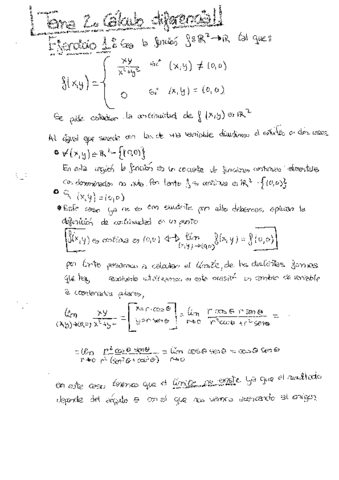 Tema 2. Cálculo diferencial
Ejercicio 1: Sea la función f: ℝ² → ℝ tal que:
f(x,y) = { xy / x²+y² si (x,y) ≠ (0,0)
0 si (x,y) = (0,0)
Se pide estudiar la continuidad de f(x,y) en ℝ²
Al igual que sucede en las de una variable dividimos el estudio en dos casos
• ∀(x,y) ∈ ℝ² - {(0,0)}
En esta región la función es un cociente de funciones continuas elementales
con denominador no nulo. Por tanto f es continua en ℝ² - {(0,0)}
• Si (x,y) = (0,0)
Este caso ya no es tan por ello debemos aplicar la
definición de continuidad en un punto
f(x,y) es continua en (0,0) ⟺ lím (x,y)→(0,0) f(x,y) = f(0,0)
por tanto pasamos a calcular el límite, de las distintas formas
que hay, utilizaremos en esta ocasión un cambio de variable
a coordenadas polares,
lím (x,y)→(0,0) xy / x²+y² = [x = r·cosθ y = r senθ] = lím r→0 r cosθ r senθ / r²cos²θ + r²sen²θ =
= lím r→0 r² cosθ senθ / r² (sen²θ + cos²θ) = lím r→0 cosθ senθ = cosθ senθ
en este caso tenemos que el límite no existe ya que el resultado
depende del ángulo θ con el que nos vamos acercando al origen